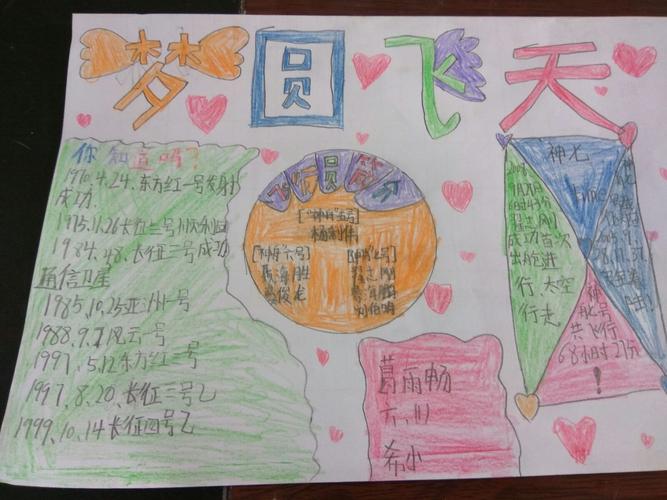 梦圆飞天
你知道吗?
1970.4.24.东方红一号发射
成功.
1975.11.26长征二号顺利回
1984.4.8.长征三号成功
通信卫星
1985.10.25亚洲一号
1988.9.7风云一号
1997.5.12东方红三号
1997.8.20.长征三号乙
1999.10.14长征四号乙
飞行员
["神舟"五号]
杨利伟
[神舟"六号]
费俊龙
刘伯明
葛雨畅
六、川
希小
神七
翟志刚
成功首次
出舱进
行、太空
行走。
共飞行
68小时27分
!